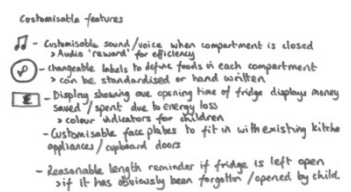 Customisable features
- Customisable sound/voice when compartment is closed
> Audio 'reward' for efficiency
- changeable labels to define foods in each compartment
> can be standardised or hand written
- Display showing ave opening time of fridge displays money
saved/spent due to energy loss
> colour indicators for children
- Customisable face plates to fit in with existing kitche
appliances/cupboard doors
- Reasonable length reminder if fridge is left open
> if it has obviously been forgotten/opened by child.